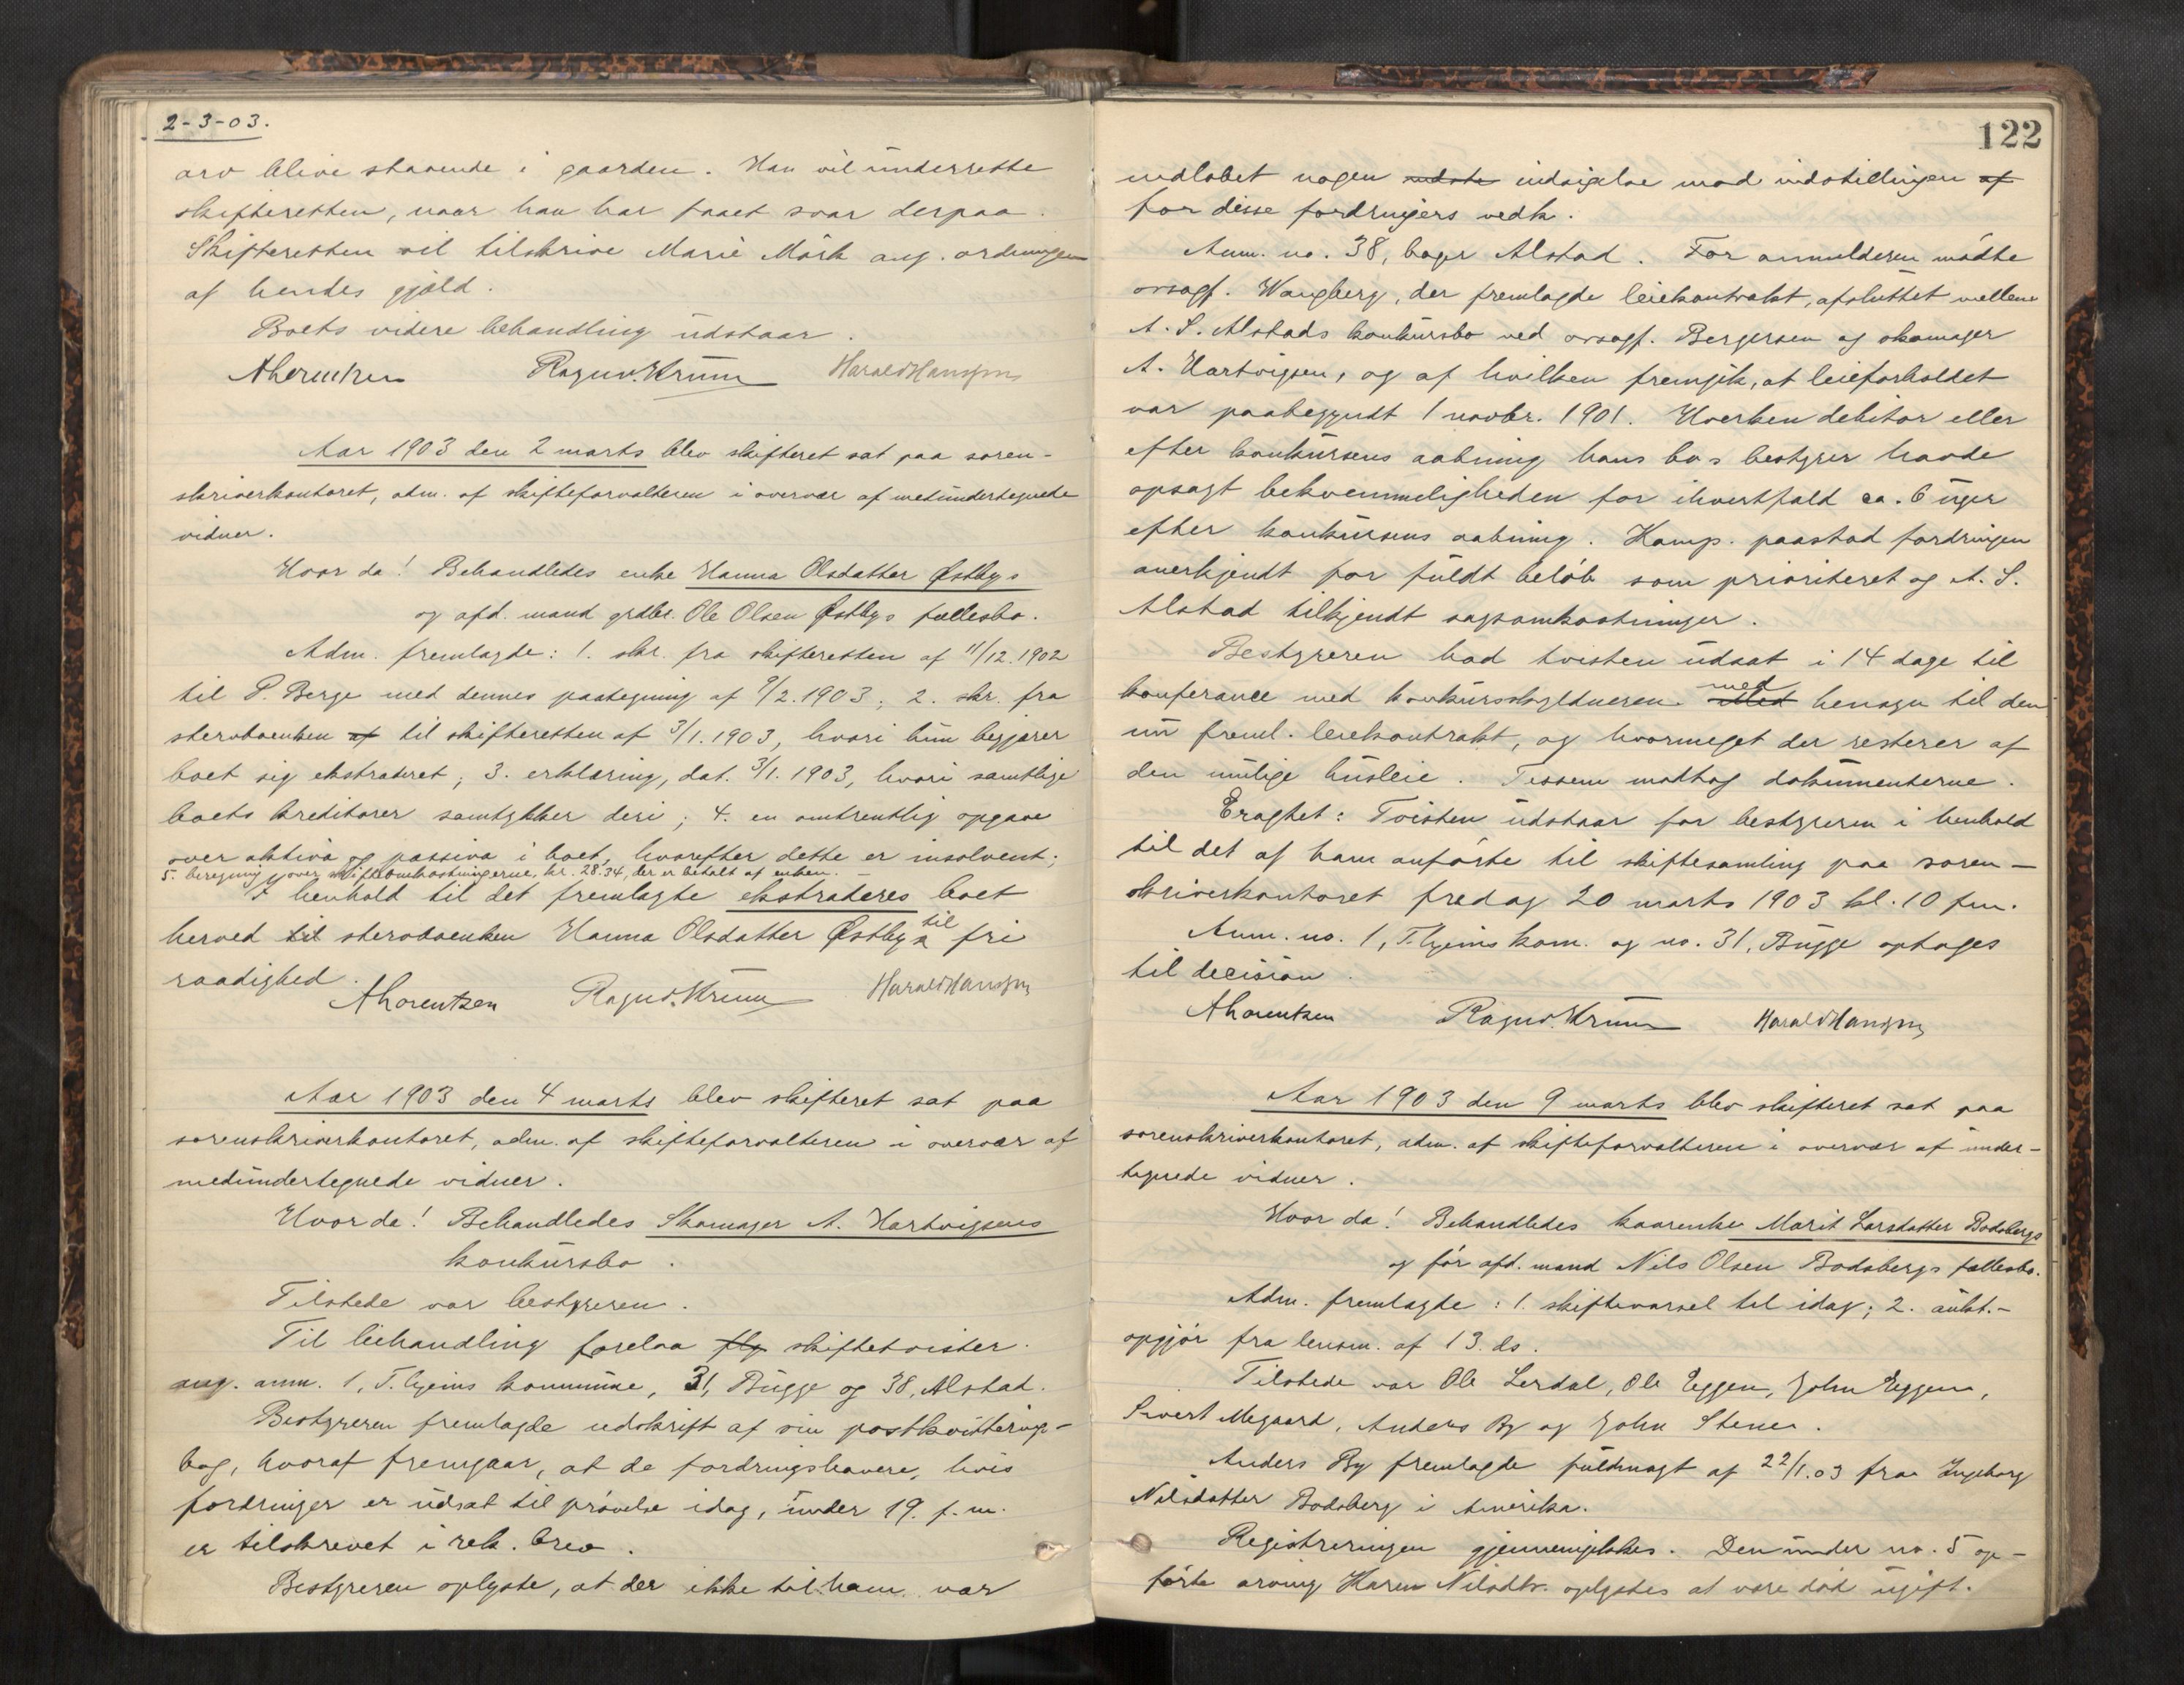 2-3-03.
arv blive staaende i gaarden. Han vil underrette
skifteretten, naar han har faaet svar derpaa.
Skifteretten vil tilskrive Marie Mörk ang. ordningen
af hendes gjæld.
Boets videre behandling udstaar.
ALorentzen Ragnv. Krüm Harald Hansen
Aar 1903 den 2 marts blev skifteret sat paa soren-
skriverkontoret, adm. af skifteforvalteren i overvær af medundertegnede
vidner.
Hvor da! Behandledes enke Hanna Olsdatter Østbys
og afd. mand grdbr. Ole Olsen Østbys fællesbo.
Adm. fremlagde: 1. skr. fra skifteretten af 11/12.1902
til P. Berge med dennes paategning af 9/2.1903; 2. skr. fra
stervboenken af til skifteretten af 3/1.1903, hvori hun begjærer
boet sig ekstraderet; 3. erklæring, dat. 3/1.1903, hvori samtlige
boets kreditorer samtykker deri; 4. en omtrentlig opgave
over aktiva og passiva i boet, hvorefter dette er insolvent;
5. beregning over skifteomkostningerne, kr. 28.34, der er betalt af enken. –
I henhold til det fremlagte ekstraderes boet
herved til stervboenken Hanna Olsdatter Østby til fri
raadighed.
ALorentzen Ragnv. Krüm Harald Hansen
Aar 1903 den 4 marts blev skifteret sat paa
sorenskriverkontoret, adm. af skifteforvalteren i overvær af
medundertegnede vidner.
Hvor da! Behandledes Skomager A. Hartvigsens
konkursbo.
Tilstede var bestyreren.
Til behandling forelaa flg skiftetvister
ang. anm. 1, T.hjems kommune, 31, Bugge og 38, Alstad.
Bestyreren fremlagde udskrift af sin postkvitterings-
bog, hvoraf fremgaar, at de fordringshavere, hvis
fordringer er udsat til prøvelse idag, under 19. f.m.
er tilskrevet i rek. brev.
Bestyreren oplyste, at der ikke til ham var
122
indløbet nogen indsigelse mod indstillingen af
for disse fordringers vedk.
Anm. no. 38, bager Alstad. For anmelderen mødte
ovsagf. Wangberg, der fremlagde leiekontrakt, afsluttet mellem
A. S. Alstads konkursbo ved ovsagf. Bergersen og skomager
A. Hartvigsen, og af hvilken fremgik, at leieforholdet
var paabegyndt 1 novbr. 1901. Hverken debitor eller
efter konkursens aabning hans bos bestyrer havde
opsagt bekvemmeligheden for ihvertfald ca. 6 uger
efter konkursens aabning. Komp. paastod fordringen
anerkjendt for fuldt beløb som prioriteret og A. S.
Alstad tilkjendt sagsomkostninger.
Bestyreren bad tvisten udsat i 14 dage til
konferance med konkursskyldneren med hensyn til den
nu freml. leiekontrakt, og hvormeget der resterer af
den mulige husleie. Tessem modtog dokumenterne.
Eragtet: Tvisten udstaar for bestyreren i henhold
til det af ham anførte til skiftesamling paa soren-
skriverkontoret fredag 20 marts 1903 kl. 10 fm.
Anm. no. 1, T.hjems kom. og no. 31, Bugge optages
til decision.
ALorentzen Ragnv. Krüm Harald Hansen
Aar 1903 den 9 marts blev skifteret sat paa
sorenskriverkontoret, adm. af skifteforvalteren i overvær af under-
tegnede vidner.
Hvor da! Behandledes kaarenke Marit Larsdatter Bodsbergs
og før afd. mand Nils Olsen Bodsbergs fællesbo.
Adm. fremlagde: 1. skiftevarsel til idag; 2. aukt.-
opgjør fra lensm. af 13. ds.
Tilstede var Ole Lerdal, Ole Eggen, John Eggen,
Sivert Megaard, Anders By og John Stene.
Anders By fremlagde fuldmagt af 22/1.03 fra Ingeborg
Nilsdatter Bodsberg i Amerika.
Registreringen gjennemgikkes. Den under no. 5 op-
førte arving Karen Nilsdtr. oplystes at være død ugift.